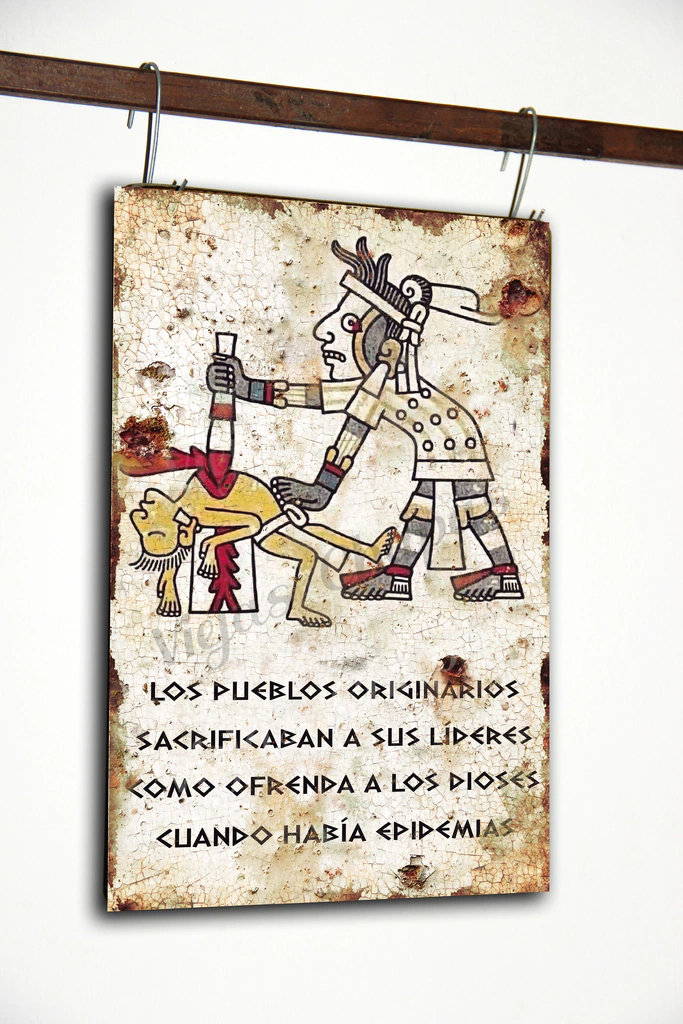 LOS PUEBLOS ORIGINARIOS
SACRIFICABAN A SUS LÍDERES
COMO OFRENDA A LOS DIOSES
CUANDO HABÍA EPIDEMIAS
Viejas